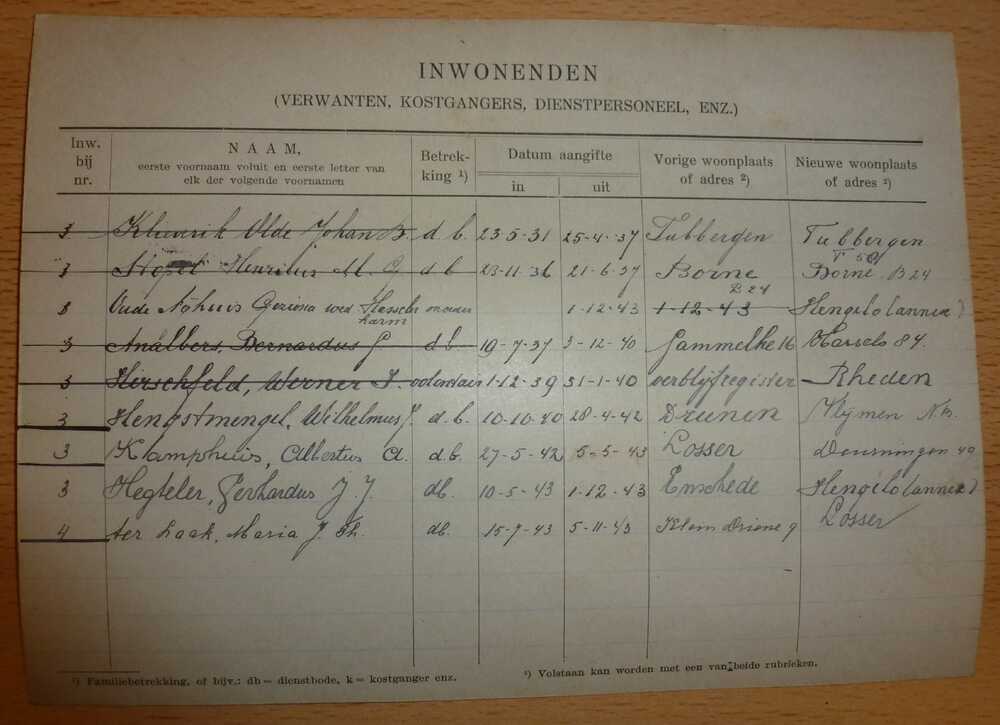 INWONENDEN
(VERWANTEN, KOSTGANGERS, DIENSTPERSONEEL, ENZ.)
Inw. bij nr. NAAM, eerste voornaam voluit en eerste letter van elk der volgende voornamen Betrekking ¹) Datum aangifte in uit Vorige woonplaats of adres ²) Nieuwe woonplaats of adres ²)
3 Olde Johan B. d.b. 23-5-31 25-4-37 Tubbergen Tubbergen
3 Henrikus M. G d b 23-11-36 21-6-37 Borne B24 Borne B24
8 Oude Nyhuis wed Hesseler harm 1-12-43 1-12-43 Hengelo (annex)
3 Analbers, Bernardus G d.b. 19-7-37 3-12-40 Gammelke 16 Hasselo 84.
3 Hirschfeld, Werner J. volontair 1-12-39 31-1-40 verblijfregister Rheden
3 Hengstmengel, Wilhelmus J. d.b. 10-10-40 28-4-42 Drunen Vlijmen N.B.
3 Kamphuis, Albertus A. d.b. 27-5-42 5-5-43 Losser Deurningen 49
3 Hegteler, Gerhardus J J. db. 10-5-43 1-12-43 Enschede Hengelo (annex)
4 ter Laak, Maria J. Th. db. 15-7-43 5-11-43 Klein Driene 9 Losser
¹) Familiebetrekking, of bijv.: db = dienstbode, k = kostganger enz.
²) Volstaan kan worden met een van beide rubrieken.